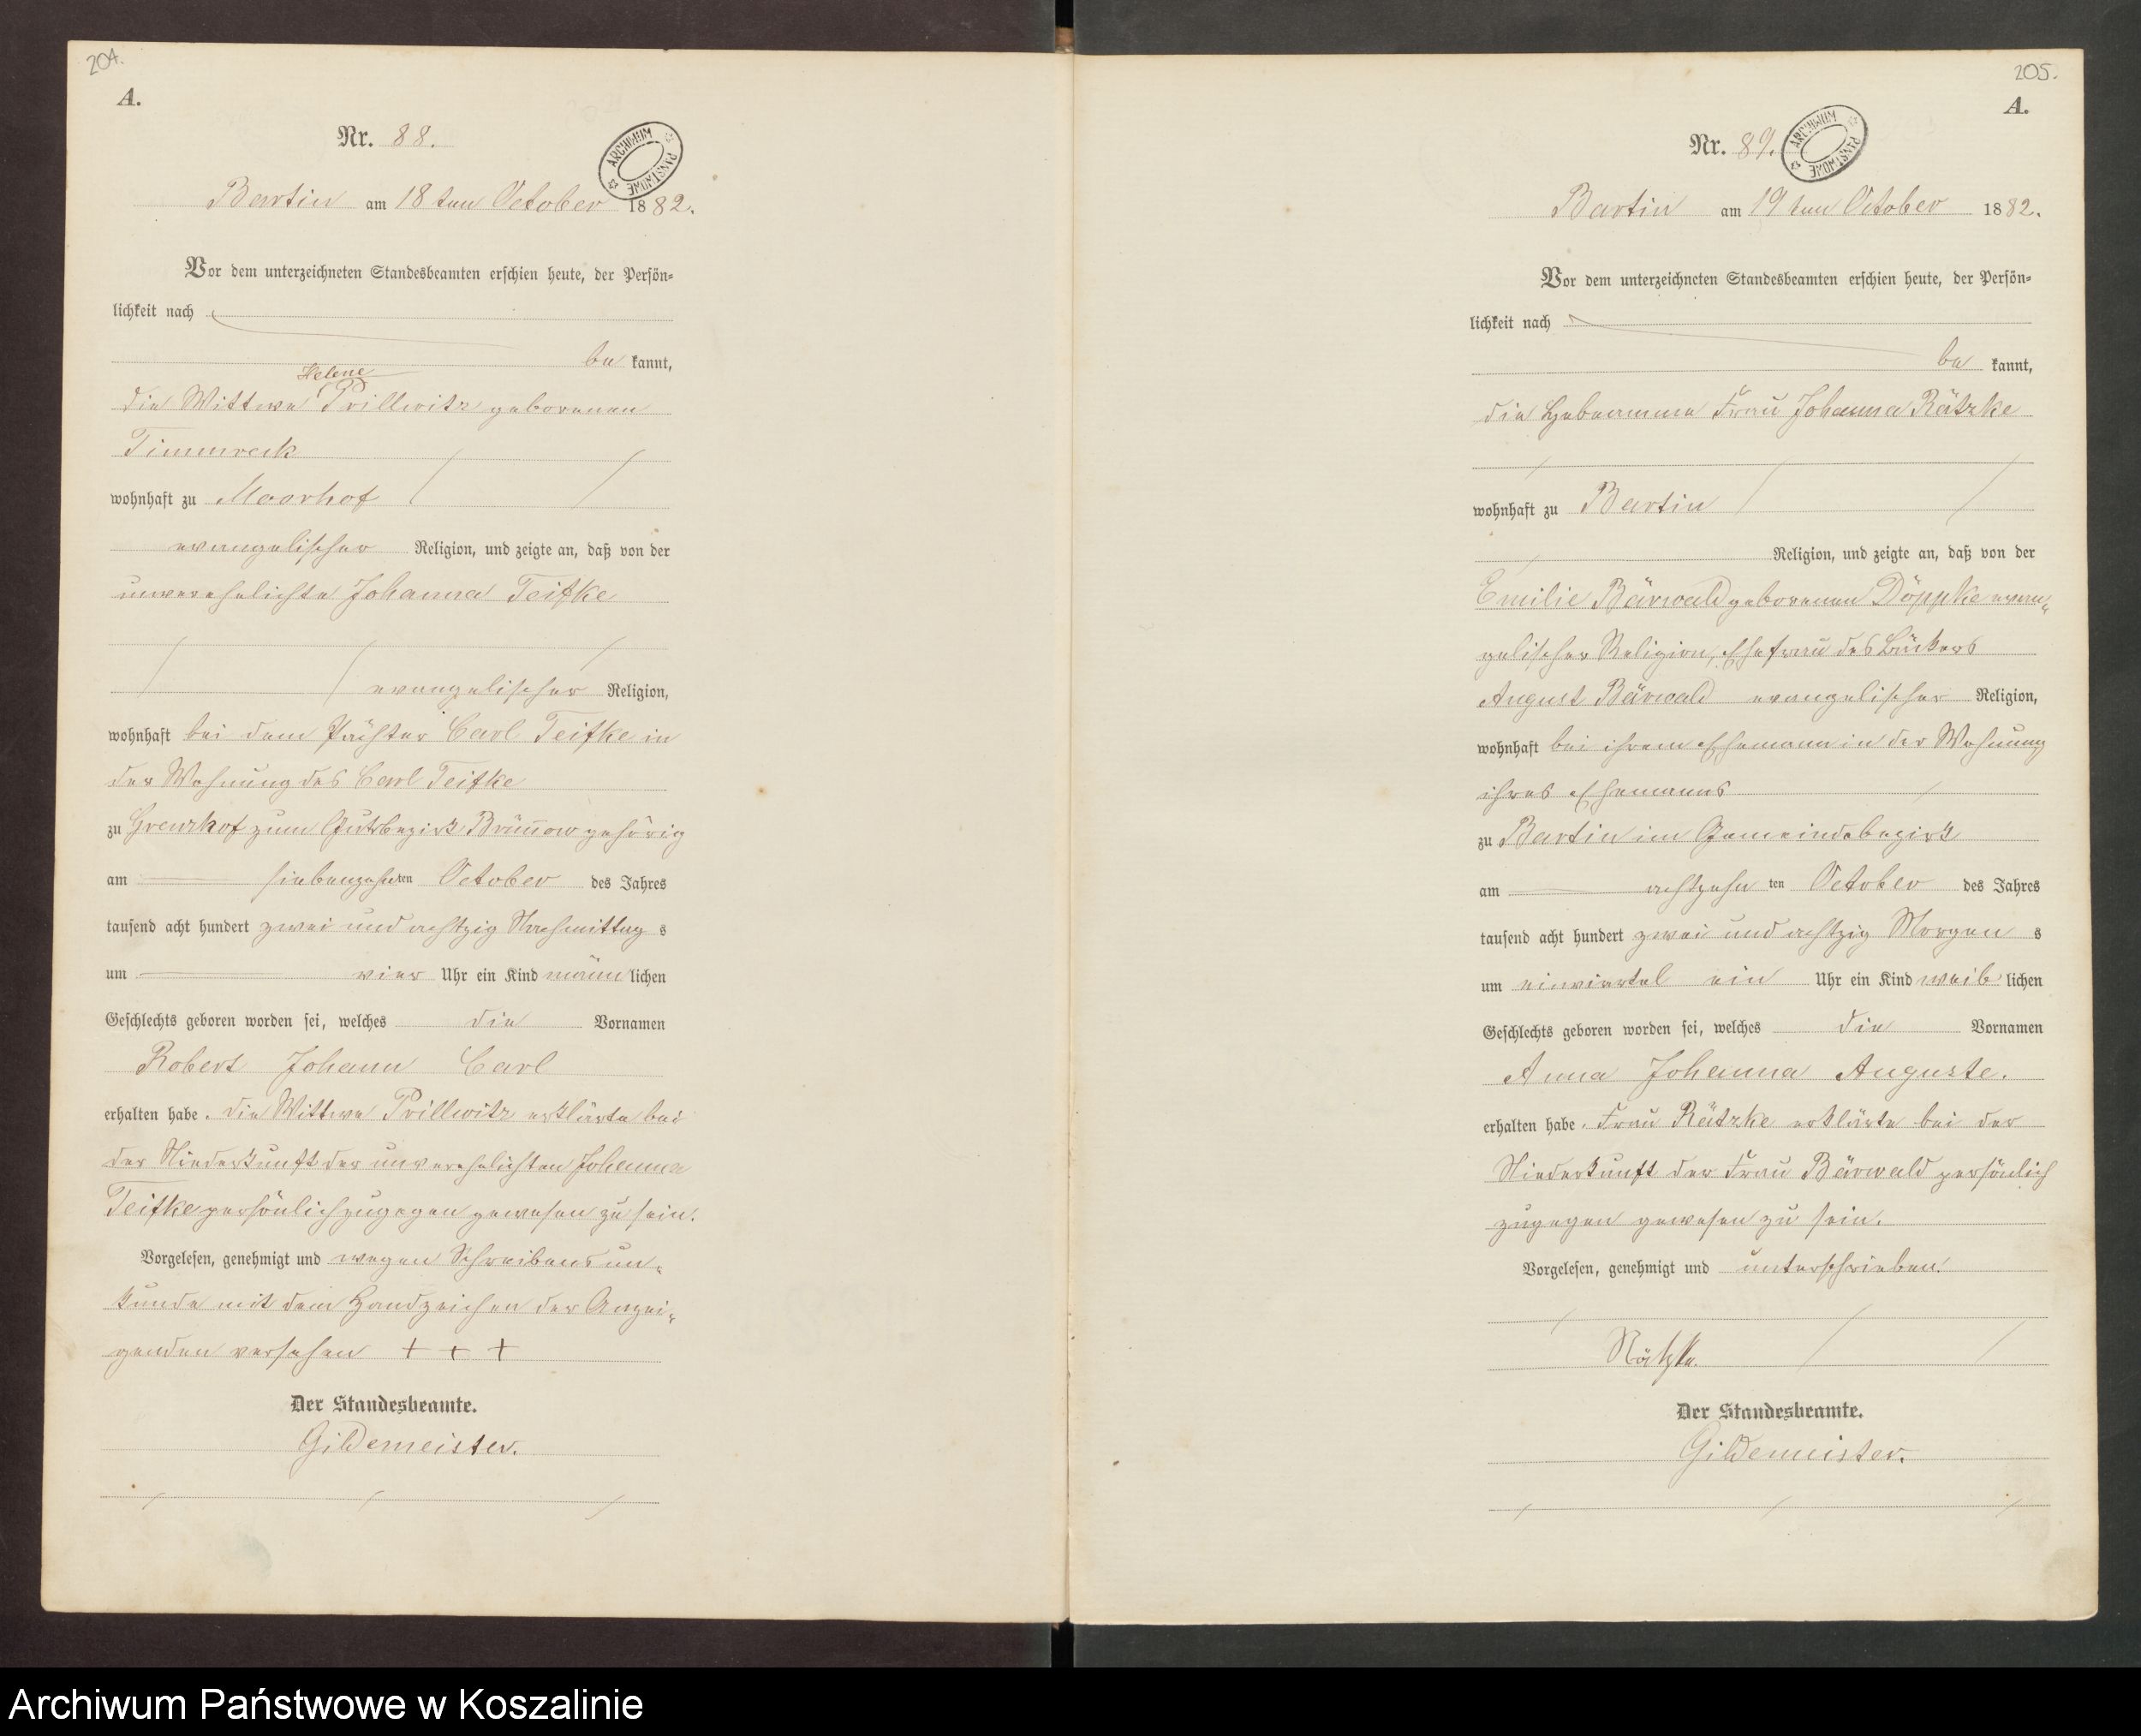 204.
A.
Nr. 88.
ARCHIWUM PAŃSTWOWE
Bartin am 18 ten October 1882.
Vor dem unterzeichneten Standesbeamten erschien heute, der Persön-
lichkeit nach
be kannt,
Helene
die Wittwe Prillwitz geborenen
Timmreck
wohnhaft zu Moorhof
evangelischer Religion, und zeigte an, daß von der
unverehelichte Johanna Teifke
evangelischer Religion,
wohnhaft bei dem Pächter Carl Teifke in
der Wohnung des Carl Teifke
zu Grenzhof zum Gutsbezirk Brünnow gehörig
am siebenzehnten October des Jahres
tausend acht hundert zwei und achtzig Nachmittag s
um vier Uhr ein Kind männ lichen
Geschlechts geboren worden sei, welches die Vornamen
Robert Johann Carl
erhalten habe. Die Wittwe Prillwitz erklärte bei
der Niederkunft der unverehelichten Johanna
Teifke persönlich zugegen gewesen zu sein.
Vorgelesen, genehmigt und wegen Schreibens un-
kunde mit dem Handzeichen der Anzei-
genden versehen + + +
Der Standesbeamte.
Gildemeister.
205.
A.
Nr. 89.
ARCHIWUM PAŃSTWOWE
Bartin am 19 ten October 1882.
Vor dem unterzeichneten Standesbeamten erschien heute, der Persön-
lichkeit nach
be kannt,
die Hebeamme Frau Johanna Rätzke
wohnhaft zu Bartin
Religion, und zeigte an, daß von der
Emilie Bärwald geborenen Döppke evan-
gelischer Religion, Ehefrau des Bäckers
August Bärwald evangelischer Religion,
wohnhaft bei ihrem Ehemann in der Wohnung
ihres Ehemanns
zu Bartin im Gemeindebezirk
am achtzehn ten October des Jahres
tausend acht hundert zwei und achtzig Morgen s
um einviertel ein Uhr ein Kind weib lichen
Geschlechts geboren worden sei, welches die Vornamen
Anna Johanna Auguste.
erhalten habe. Frau Rätzke erklärte bei der
Niederkunft der Frau Bärwald persönlich
zugegen gewesen zu sein.
Vorgelesen, genehmigt und unterschrieben.
Rätzke.
Der Standesbeamte.
Gildemeister.
Archiwum Państwowe w Koszalinie